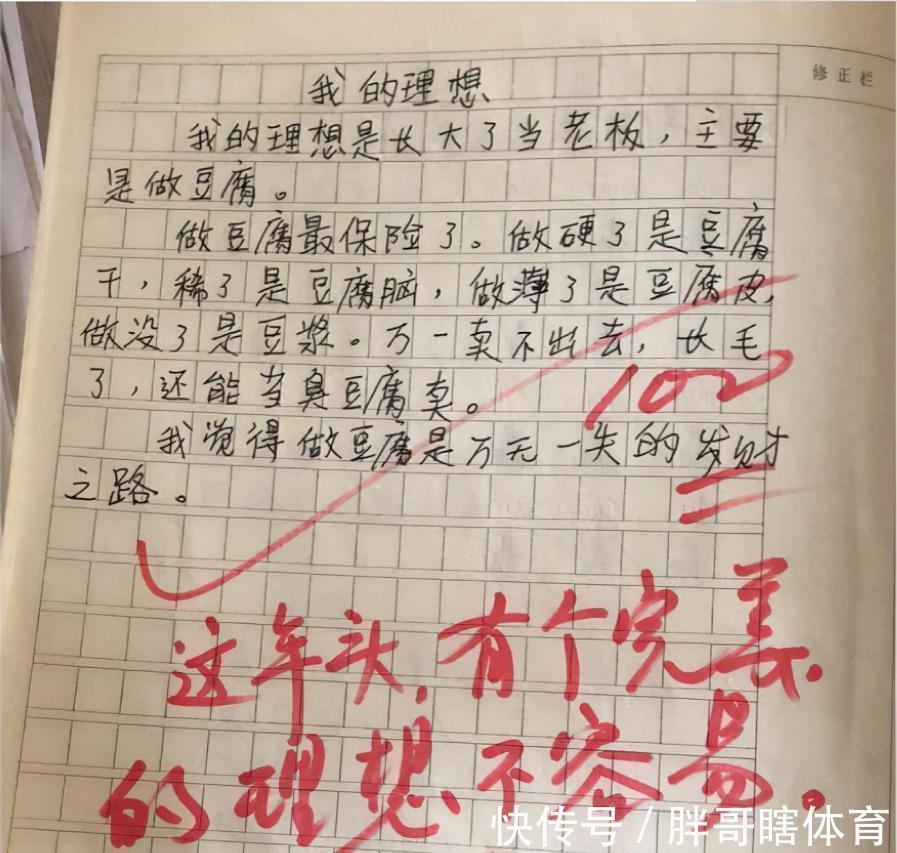 修正栏
我的理想
我的理想是长大了当老板，主要
是做豆腐。
做豆腐最保险了。做硬了是豆腐
干，稀了是豆腐脑，做薄了是豆腐皮，
做没了是豆浆。万一卖不出去，长毛
了，还能当臭豆腐卖。
我觉得做豆腐是万无一失的发财
之路。
100
这年头，有个完美
的理想不容易。
快传号/胖哥瞎体育